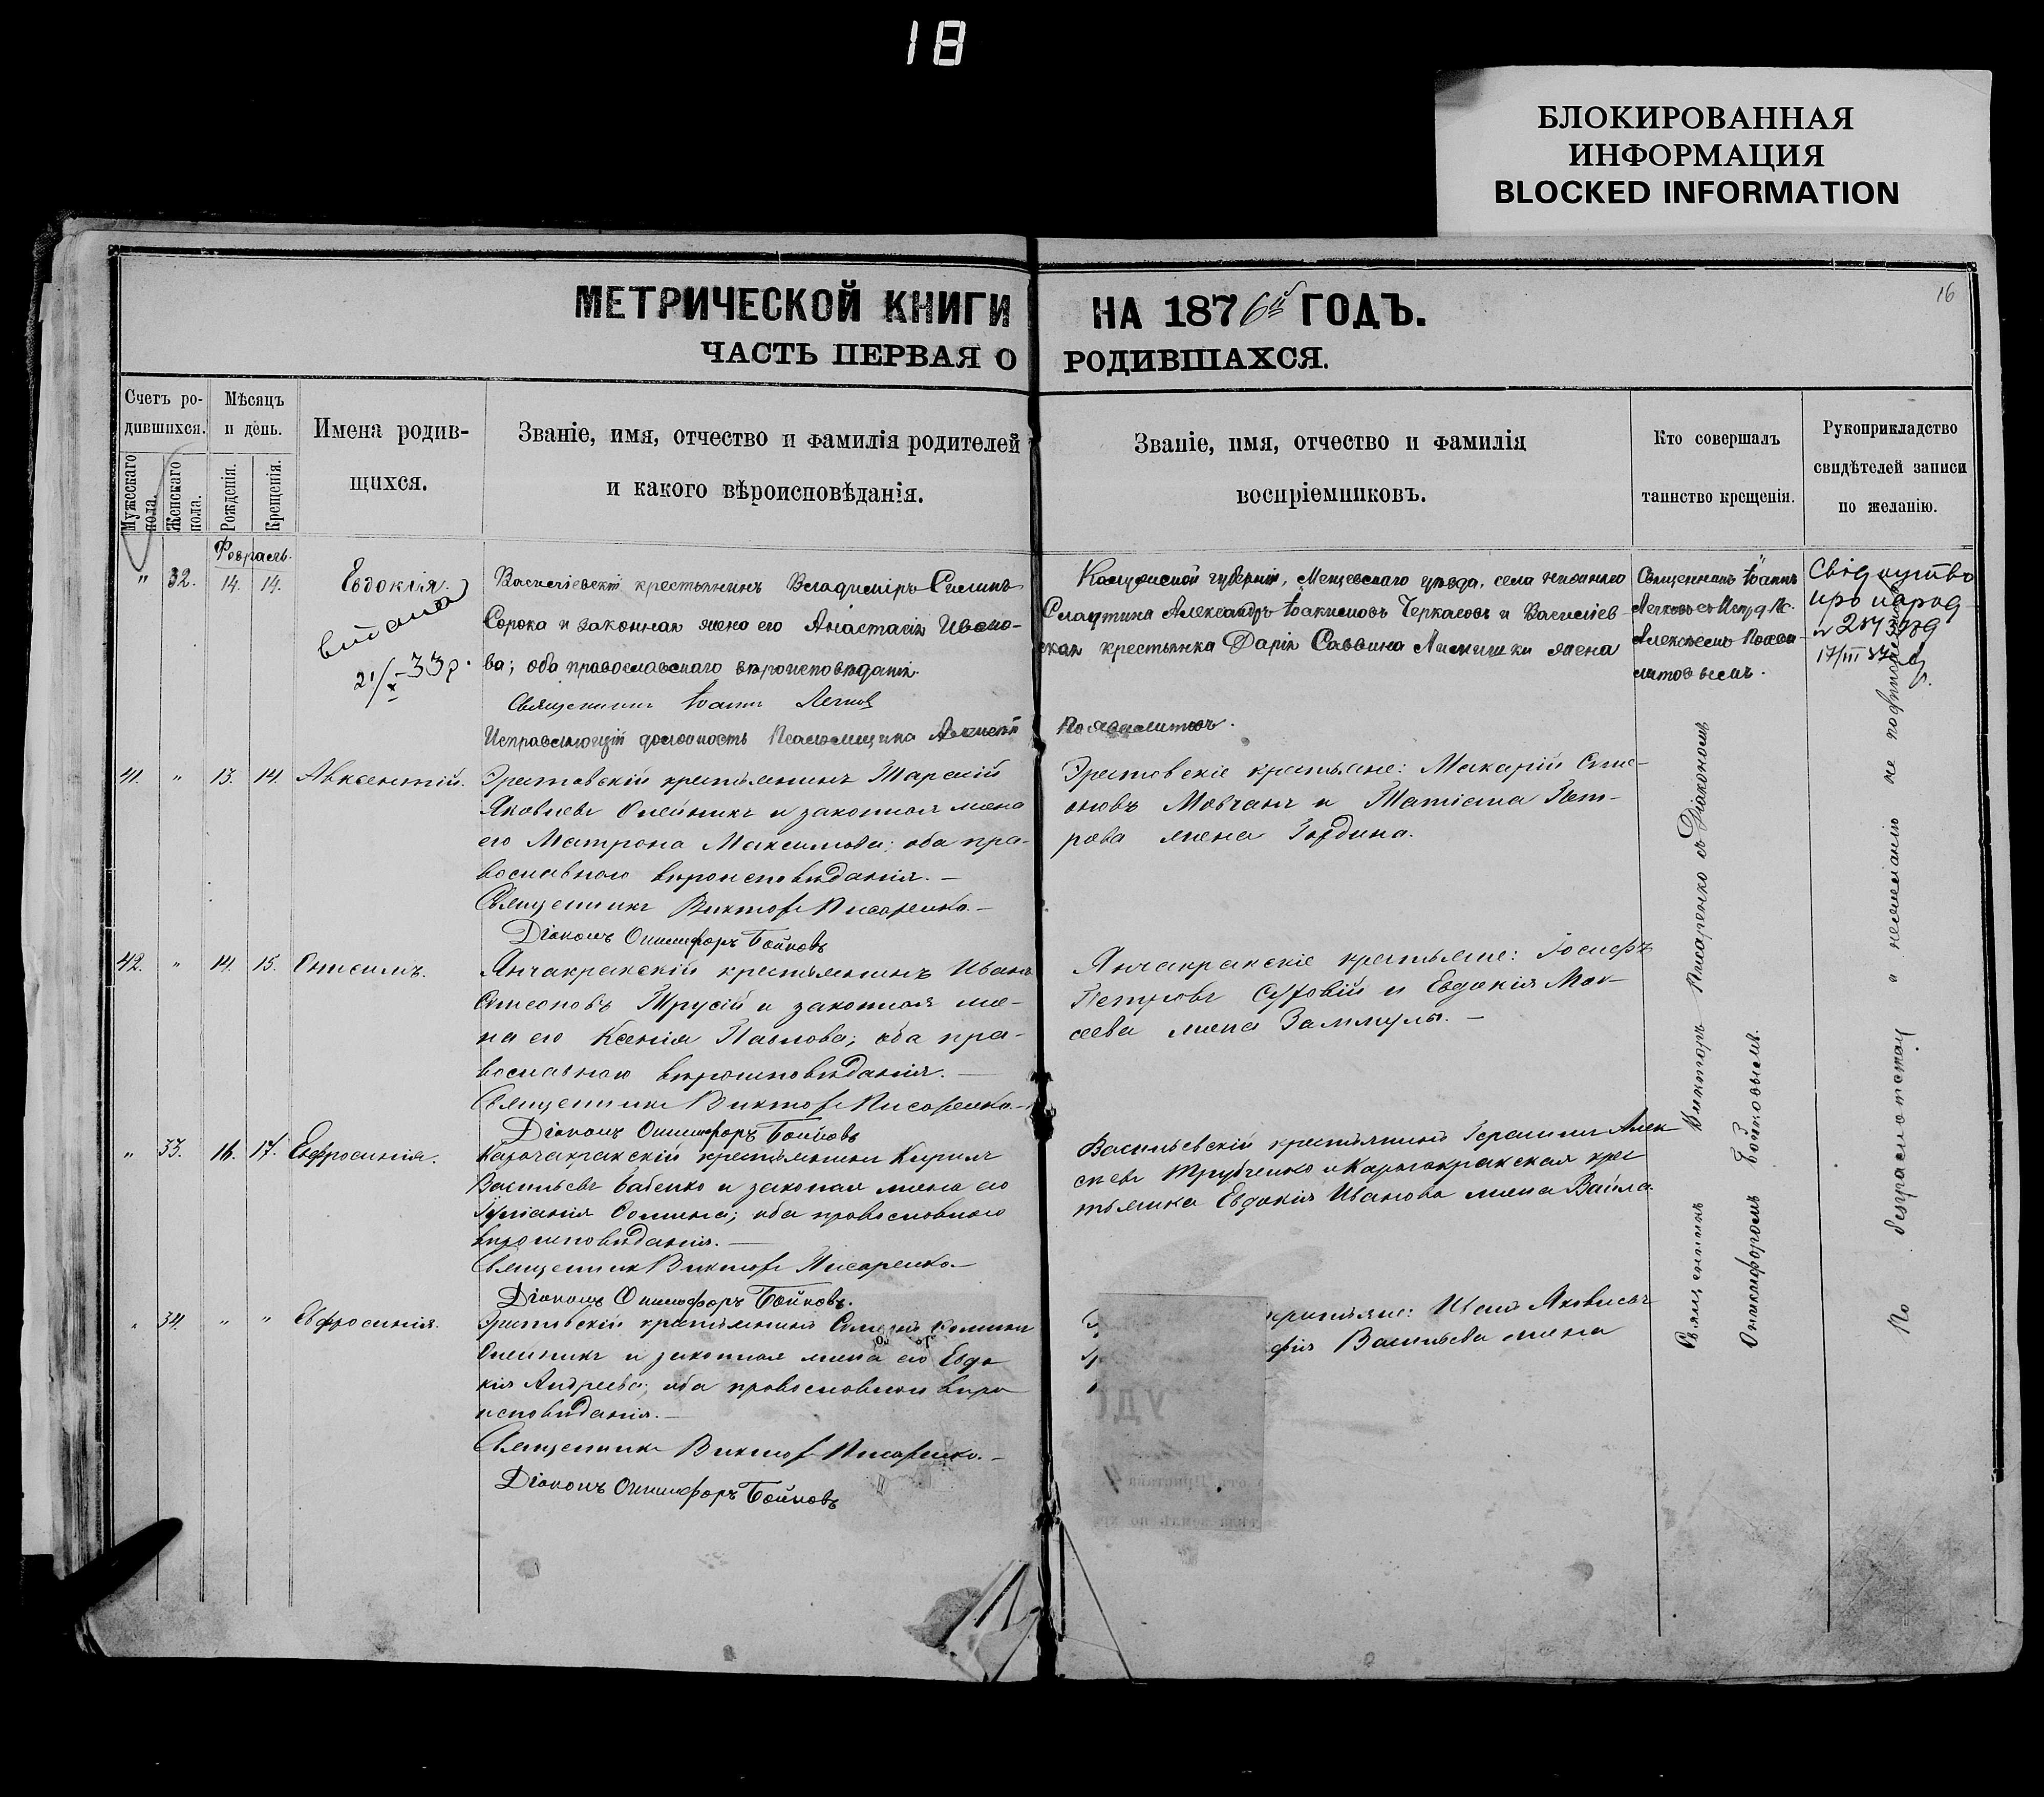 18
БЛОКИРОВАННАЯ
ИНФОРМАЦИЯ
BLOCKED INFORMATION
16
МЕТРИЧЕСКОЙ КНИГИ НА 1876й ГОДЪ.
ЧАСТЬ ПЕРВАЯ О РОДИВШАХСЯ.
Счетъ ро-
дившихся.
Мужескаго пола.
Женскаго пола.
Мѣсяцъ
и день.
Рожденія.
Крещенія.
Имена родив-
щихся.
Званіе, имя, отчество и фамилія родителей
и какого вѣроисповѣданія.
Званіе, имя, отчество и фамилія
воспріемниковъ.
Кто совершалъ
таинство крещенія.
Рукоприкладство
свидѣтелей записи
по желанію.
Февраль.
" 32. 14. 14. Евдокія.
видана
21/X-33р.
Василіевскій крестьянинъ Владиміръ Силинъ
Сорока и законная жена его Анастасія Ивано-
ва; оба православнаго вѣроисповѣданія.
Священникъ Іоаннъ Легковъ
Исправляющій должность Псаломщика Алексѣй
Калужской губерніи, Мещовскаго уѣзда, села
Александръ Іоакимовъ Черкасовъ и Василіев-
ская крестьянка Дарія Саввина жена
Священникъ Іоаннъ
Легковъ съ
Алексѣемъ
Свідоцтво
про народ
17/III 37
41. " 13. 14. Авксентій.
Эристовскій крестьянинъ Тарасій
Яковлевъ Олейникъ и законная жена
его Матрона Максимова; оба пра-
вославного вѣроисповѣданія. —
Священникъ Викторъ Писаренко. —
Діаконъ Онисифоръ Бойковъ
Эристовскіе крестьяне: Макарій Симе-
оновъ Мовчанъ и Татіана Пет-
рова жена Гордина.
42. " 14. 15. Онисимъ.
Янчакракскій крестьянинъ Иванъ
Симеоновъ Трусій и законная же-
на его Ксенія Павлова; оба пра-
вославного вѣроисповѣданія. —
Священникъ Викторъ Писаренко. —
Діаконъ Онисифоръ Бойковъ
Янчакракскіе крестьяне: Іосифъ
Петровъ Суховій и Евдокія Мои-
сеева жена
" 33. 16. 17. Евфросинія.
Карачакракскій крестьянинъ Кирилъ
Васильевъ Бабенко и законая жена его
Іуліанія Фомина; оба православного
вѣроисповѣданія. —
Священникъ Викторъ Писаренко —
Діаконъ Онисифоръ Бойковъ.
Васильевскій крестьянинъ Герасимъ Алек
сѣевъ Трубченко и Карачакракская крес
тьянка Евдокія Иванова жена Вайла.
" 34. " " Евфросинія.
Эристовскій крестьянинъ Симеонъ Фоминъ
Олейникъ и законная жена его Евдо
кія Андреева; оба православного вѣро
исповѣданія. —
Священникъ Викторъ Писаренко. —
Діаконъ Онисифоръ Бойковъ
крестьяне: Иванъ Яковлевъ
Васильева жена
Священникъ Викторъ Писаренко съ Діакономъ
Онисифоромъ Бойковымъ.
По безграмотству и нежеланію не подписались